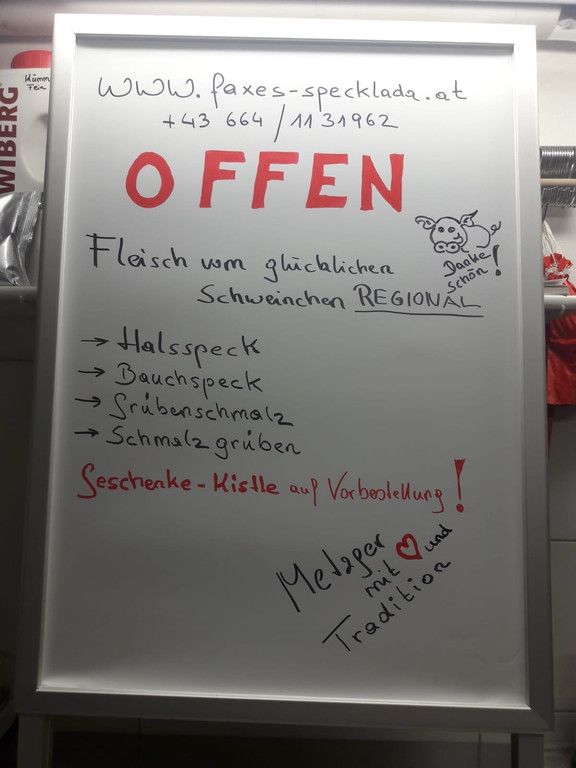 www.faxes-specklada.at
+43 664/1131962
OFFEN
Fleisch vom glücklichen
Schweinchen REGIONAL
Danke
schön!
→ Halsspeck
→ Bauchspeck
→ Grübenschmalz
→ Schmalzgrüben
Geschenke-Kistle auf Vorbestellung!
Metzger
mit ♡ und
Tradition
WIBERG
Kümm
Fein